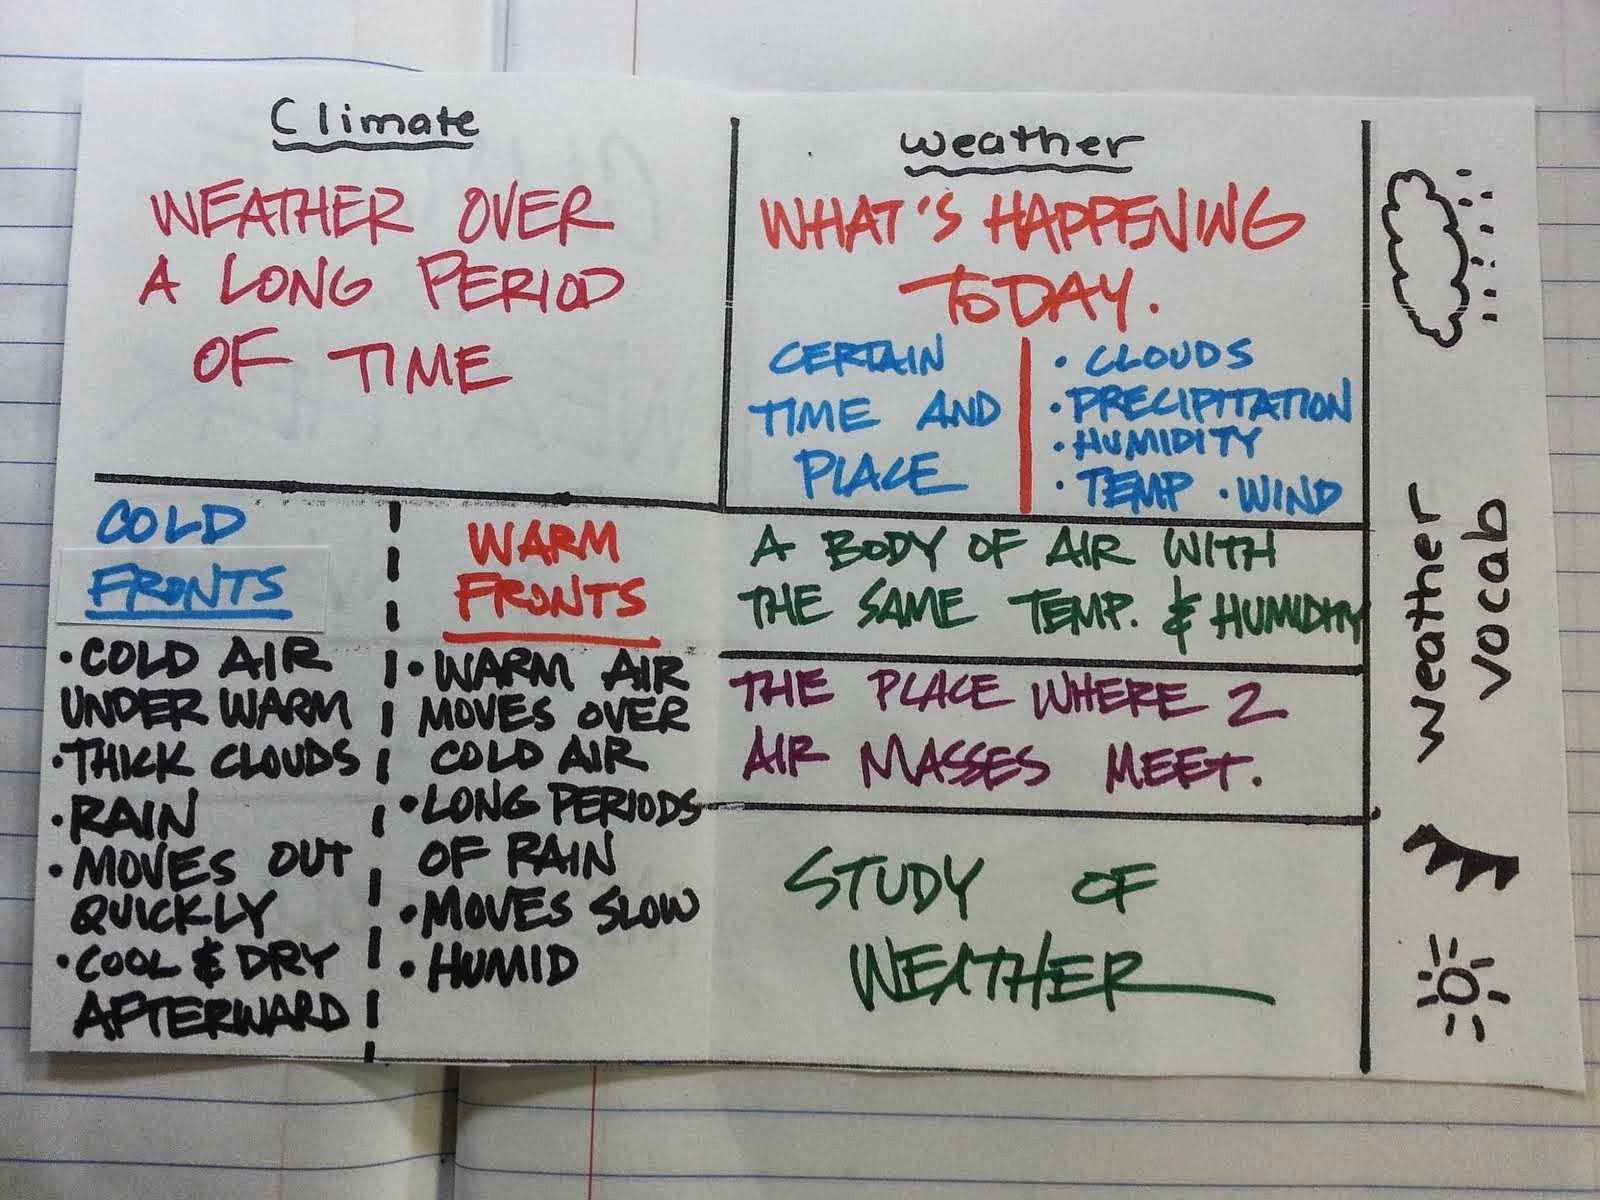 Climate
WEATHER OVER
A LONG PERIOD
OF TIME
weather
WHAT'S HAPPENING
TODAY.
CERTAIN
TIME AND
PLACE
• CLOUDS
• PRECIPITATION
• HUMIDITY
• TEMP • WIND
COLD
FRONTS
• COLD AIR
UNDER WARM
• THICK CLOUDS
• RAIN
• MOVES OUT
QUICKLY
• COOL & DRY
AFTERWARD
WARM
FRONTS
• WARM AIR
MOVES OVER
COLD AIR
• LONG PERIODS
OF RAIN
• MOVES SLOW
• HUMID
A BODY OF AIR WITH
THE SAME TEMP. & HUMIDITY
THE PLACE WHERE 2
AIR MASSES MEET.
STUDY OF
WEATHER
weather
vocab